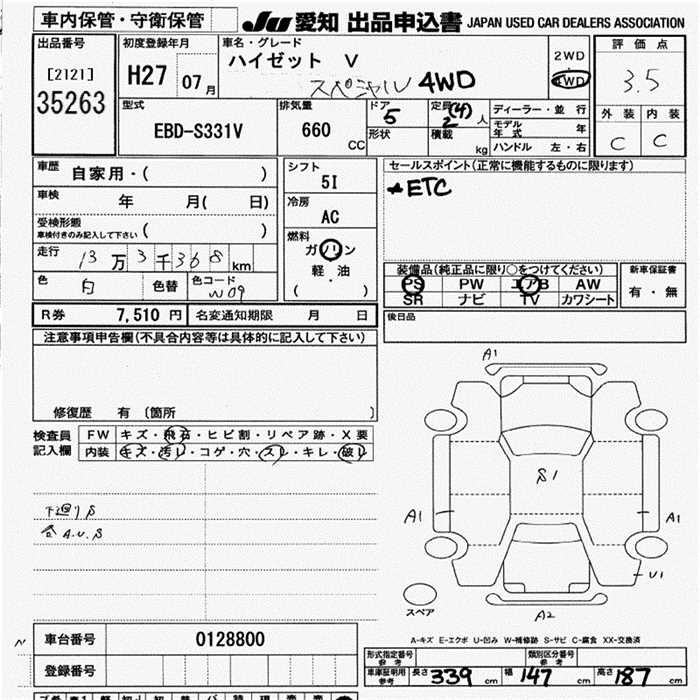 車内保管・守衛保管 JU 愛知 出品申込書 JAPAN USED CAR DEALERS ASSOCIATION
出品番号 初度登録年月 車名・グレード 評価点
[2121] H27 07月 ハイゼット V 2WD
35263 スペシャル 4WD 4WD 3.5
型式 排気量 ドア 定員 (4) ディーラー・並行 外装 内装
EBD-S331V 660 CC 5 2 人 モデル年式 年 C C
形状 積載 kg ハンドル 左・右
車歴 自家用・( ) シフト セールスポイント(正常に機能するものに限ります)
5I ETC
車検 年 月( 日) 冷房
AC
受検形態 車検付きのみ記入して下さい ( ) 燃料
走行 13万3千368km ガソリン
軽・油
( ・ )
色 白 色替 色コード W09
装備品(純正品に限り○をつけてください) 新車保証書
PS PW エアB AW 有・無
SR ナビ TV カワシート
R券 7,510円 名変通知期限 月 日 後日品
注意事項申告欄(不具合内容等は具体的に記入して下さい)
修復歴 有 〔箇所 〕
検査員 FW キズ・飛石・ヒビ割・リペア跡・X要
記入欄 内装 キズ・汚レ・コゲ・穴・スレ・キレ・破レ
下廻りS
A.U.S
A1
S1
A1 A1
U1
スペア
A2
A-キズ E-エクボ U-凹み W-補修跡 S-サビ C-腐食 XX-交換済
車台番号 0128800
登録番号
形式指定番号 参考 類別区分番号 参考
車庫証明用 参考 長さ 339cm 幅 147cm 高さ 187cm